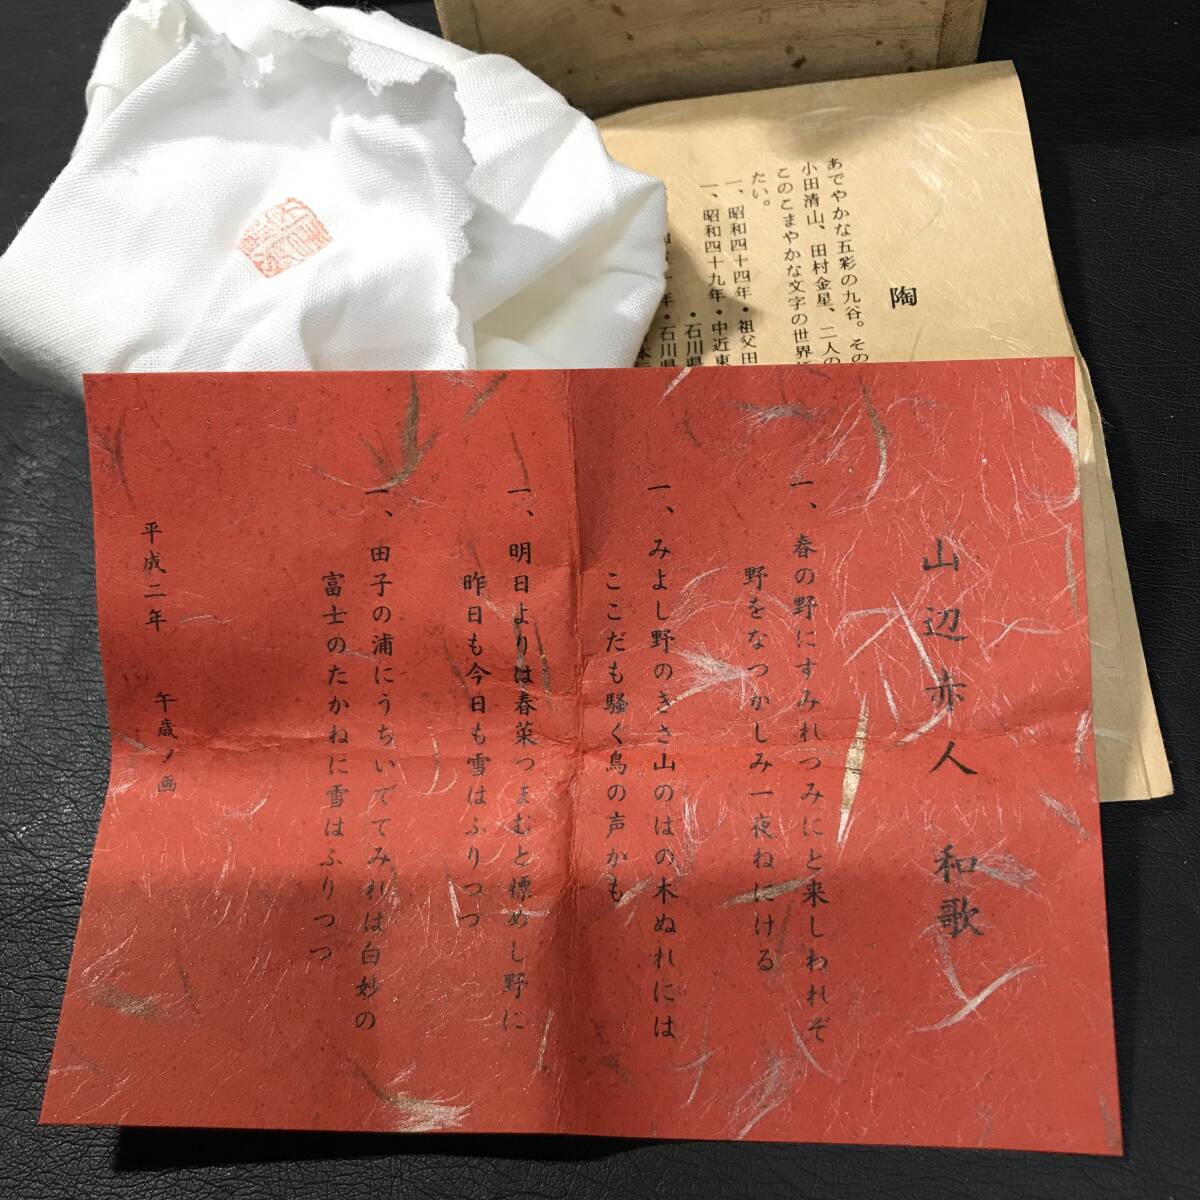 山辺赤人 和歌
一、春の野にすみれつみにと来しわれぞ
野をなつかしみ一夜ねにける
一、みよし野のきさ山のはの木ぬれには
ここだも騒く鳥の声かも
一、明日よりは春菜つまむと標めし野に
昨日も今日も雪はふりつつ
一、田子の浦にうちいでてみれは白妙の
富士のたかねに雪はふりつつ
平成二年 午歳ノ画
陶
あでやかな五彩の九谷。その
小田清山、田村金星、二人の
このこまやかな文字の世界
たい。
一、昭和四十四年・祖父田
一、昭和四十九年・中近東
・石川県
年・石川県